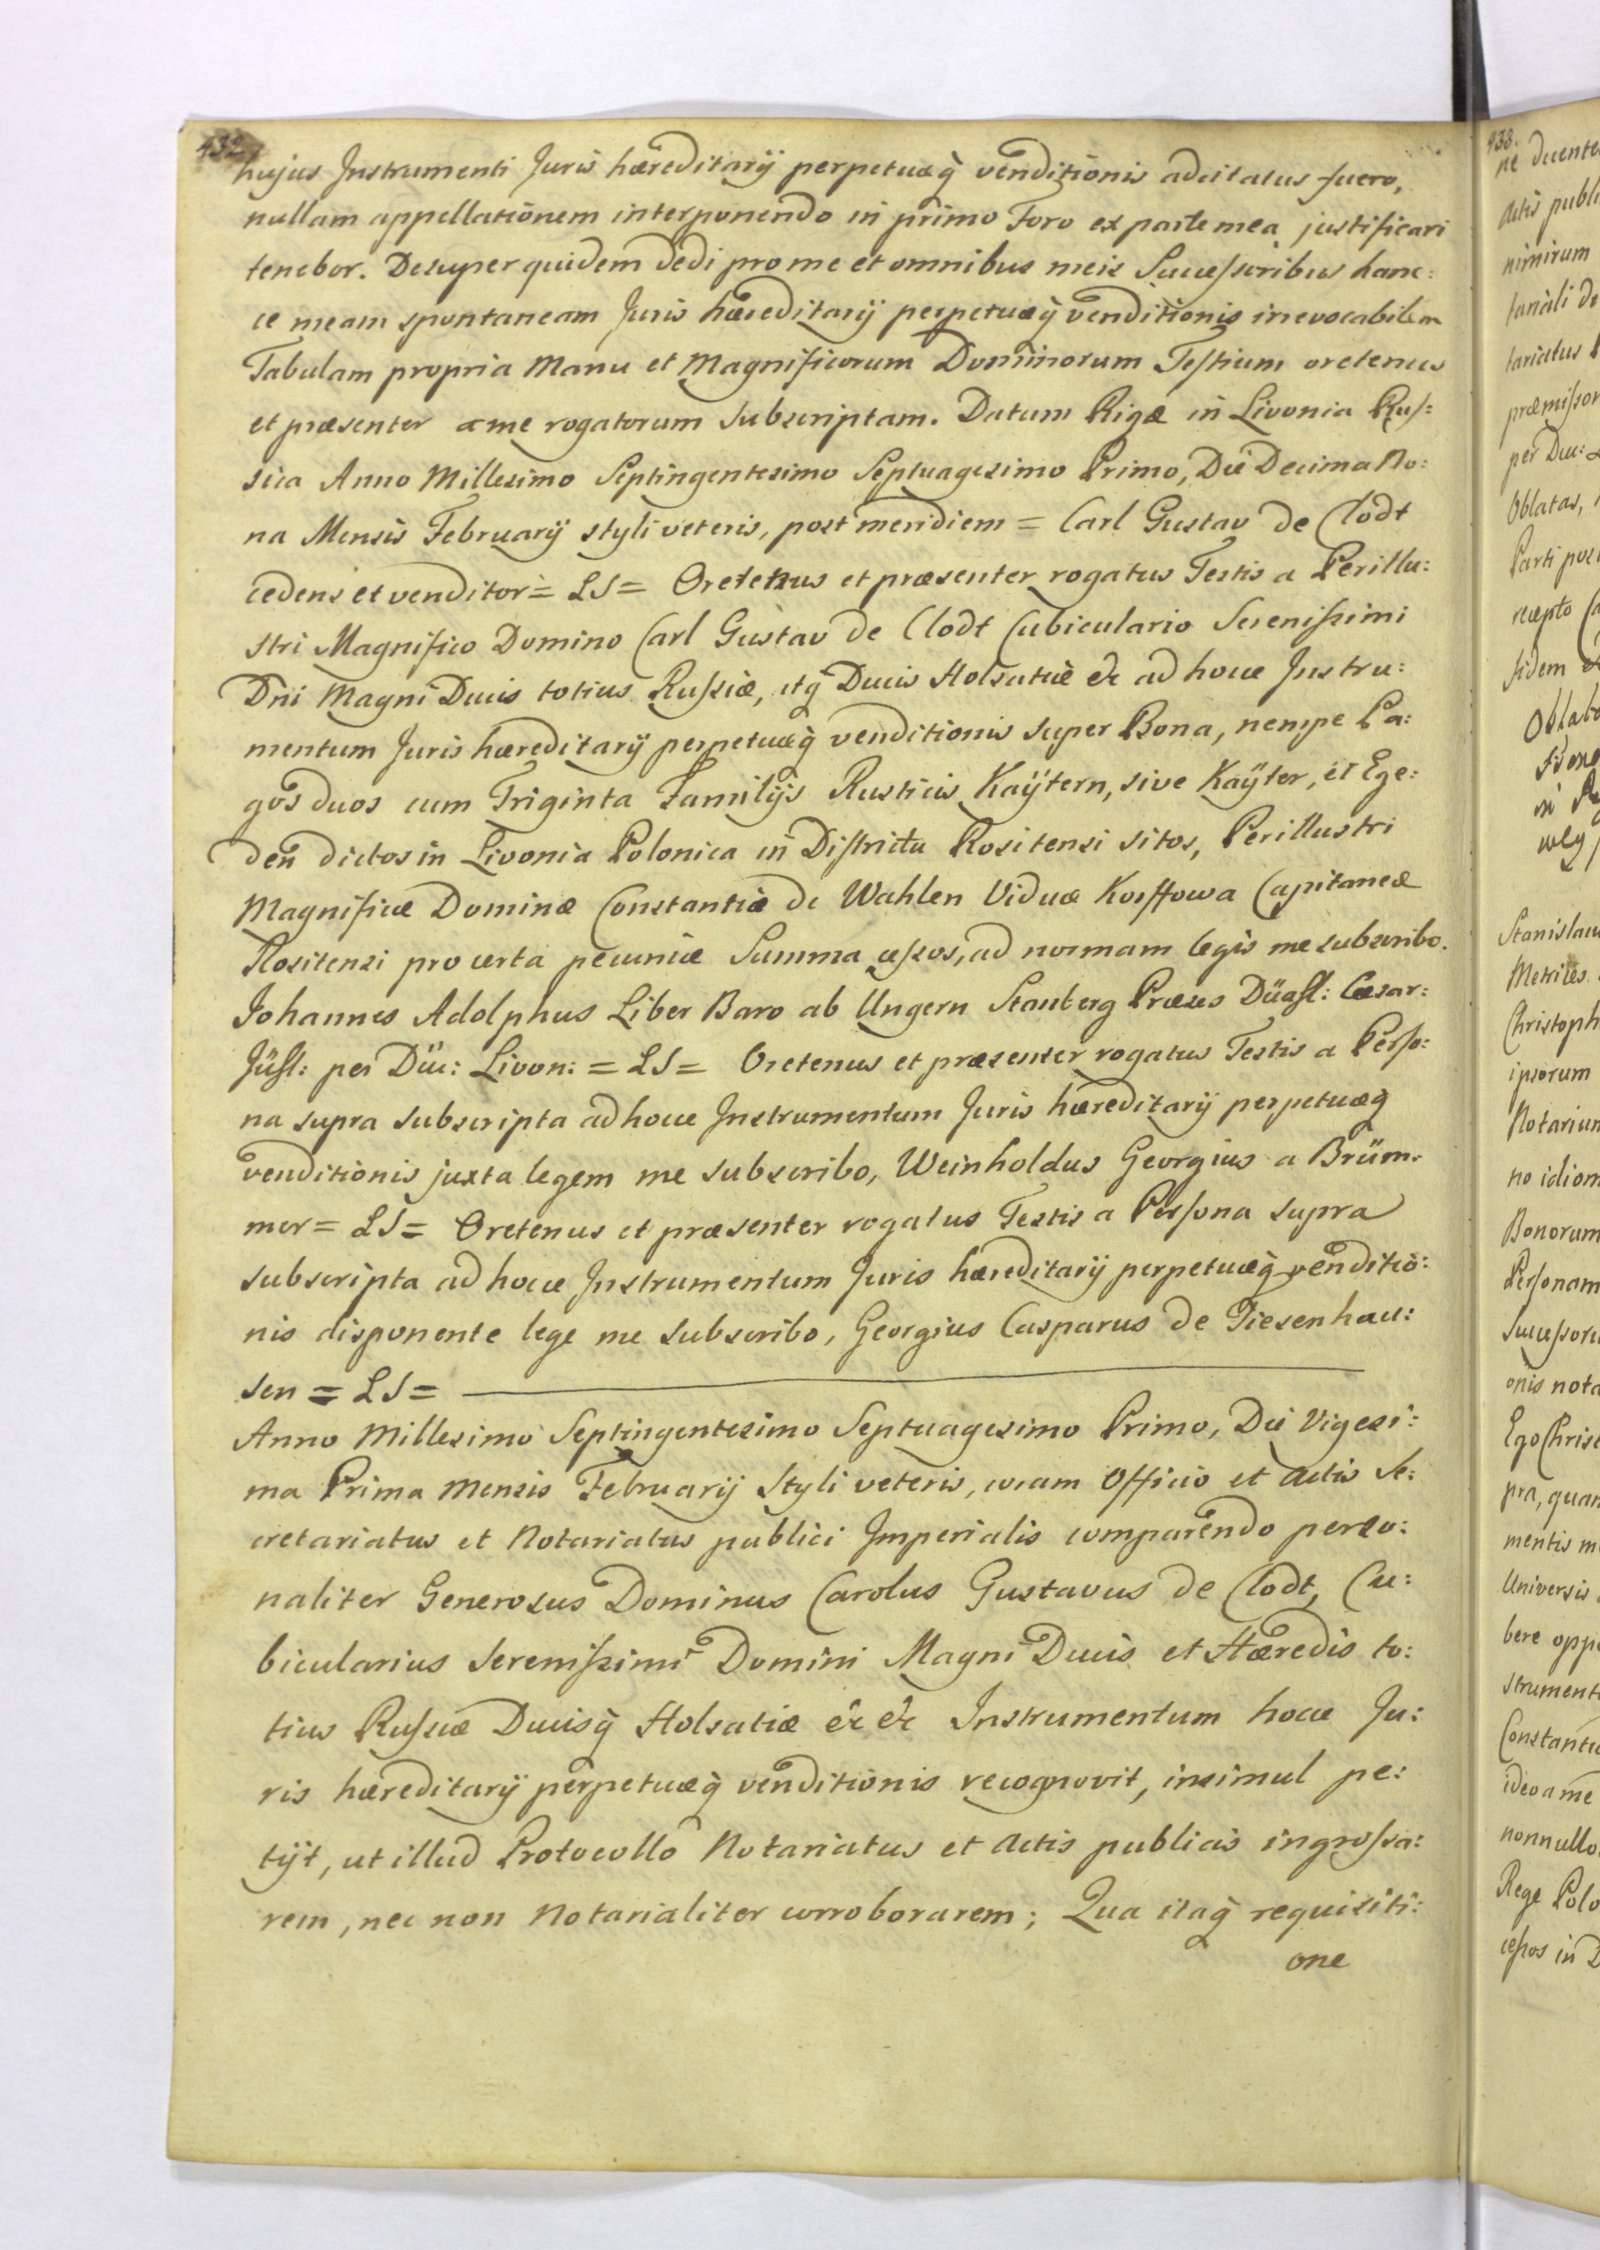 432.
hujus Instrumenti Juris hæreditarÿ perpetuæq̀ venditionis adcitatus fuero,
nullam appellationem interponendo in primo Foro ex parte mea justificari
tenebor. Desuper quidem dedi pro me et omnibus meis Sucuessoribus hanc:
ce meam spontaneam Juris hæreditarÿ perpetuæq̀ venditionis irrevocabilem
Tabulam propria Manu et Magnificorum Dominorum Testium oretenus
et præsenter a me rogatorum subscriptam. Datum Rigæ in Livonia Rus:
sica Anno Millesimo Septingentesimo Septuagesimo Primo, Die Decima No:
na Mensis Februarÿ styli veteris, post meridiem = Carl Gustav de Clodt
cedens et venditor = LS = Oretenus et præsenter rogatus Testis a Perillu:
stri Magnifico Domino Carl Gustav de Clodt Cubiculario Serenissimi
Dni Magni Ducis totius Russiæ, atq̀ Ducis Holsatiæ &c ad hocce Instru:
mentum Juris hæreditarÿ perpetuæq̀ venditionis super Bona, nempe Pa:
gos duos cum Triginta Familÿs Rusticis Kaÿtern, sive Kaÿter, et Ege:
den dictos in Livonia Polonica in Districtu Rositensi sitos, Perillustri
Magnificæ Dominæ Constantiæ de Wahlen Viduæ Korffowa Capitaneæ
Rositensi pro certa pecuniæ Summa cessos, ad normam legis me subscribo.
Johannes Adolphus Liber Baro ab Ungern Stenberg Præses Düast: Cæsar:
Jüst: per Duc: Livon: = LS = Oretenus et præsenter rogatus Testis a Perso:
na supra subscripta ad hocce Instrumentum Juris hæreditarÿ perpetuæq̀
venditionis juxta legem me subscribo, Weinholdus Georgius a Brüm:
mer = LS = Oretenus et præsenter rogatus Testis a Persona supra
subscripta ad hocce Instrumentum Juris hæreditarÿ perpetuæq̀ venditio:
nis disponente lege me subscribo, Georgius Casparus de Tiesenhau:
sen = LS =
Anno Millesimo Septingentesimo Septuagesimo Primo, Die Vigesi:
ma Prima Mensis Februarÿ Styli veteris, coram Officio et Actis Se:
cretariatus et Notariatus publici Imperialis comparendo perso:
naliter Generosus Dominus Carolus Gustavus de Clodt, Cu:
bicularius Serenissimi Domini Magni Ducis et Hæredis to:
tius Russiæ Ducisq̀ Holsatiæ &c &c Instrumentum hocce Ju:
ris hæreditarÿ perpetuæq̀ venditionis recognovit, insimul pe:
tÿt, ut illud Protocollo Notariatus et Actis publicis ingrossa:
rem, nec non Notarialiter corroborarem; Qua itaq̀ requisiti:
one
433.
ne ducente
Actis publi
nimirum
tariali de
tariatus
præmissor
per Duc:
Oblatas,
Parti pos
recepto
fidem
Oblato
Stanislau
Metrices
Christoph
ipsorum
Notarium
no idiom
Bonorum
Personam
Sucuessoru
onis nota
Ego Christ
pra, quan
mentis m
Universis
bere oppo
strument
Constantiæ
ideo a me
nonnullo
Rege Polo
cessos in D